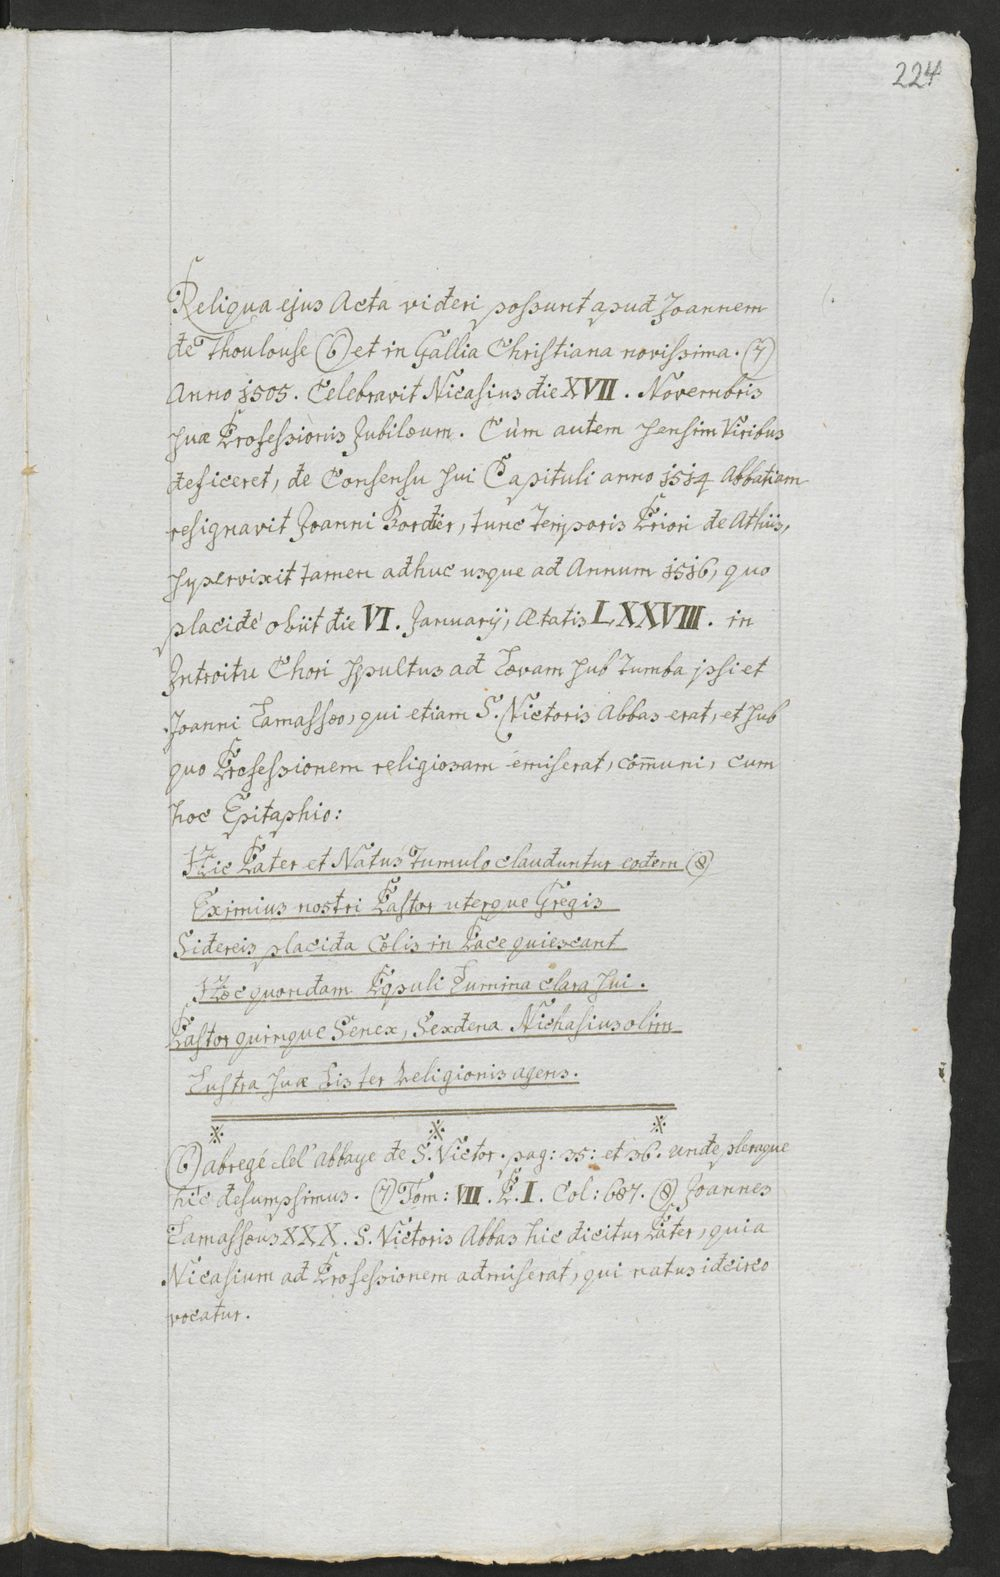 224
Reliqua ejus Acta videri possunt apud Joannem
de Thoulouse (6) et in Gallia Christiana novissima. (7)
Anno 1505. Celebravit Nicasius die XVII. Novembris
suæ Professionis Jubilæum. Cùm autem sensim Viribus
deficeret, de Consensu sui Capituli anno 1514 Abbatiam
resignavit Joanni Bordier, tunc Temporis Priori de Athiis,
supervixit tamen adhuc usque ad Annum 1516, quo
placidè obiit die VI. Januarij, Ætatis LXXVIII. in
Introitu Chori sepultus ad Lævam sub Tumba ipsi et
Joanni Lamassæo, qui etiam S. Victoris Abbas erat, et sub
quo Professionem religiosam emiserat, com̄uni, cum
hoc Epitaphio:
Hic Pater et Natus Tumulo clauduntur eodem (8)
Eximius nostri Pastor uterque Gregis
Sidereis placida Cœlis in Pace quiescant
Hæc quondam Populi Lumina clara sui.
Pastor quinque Senex, Sexdena Nichasius olim
Lustra suæ bis ter Religionis agens.
(6) abregé del' Abbaye de S. Victor. pag: 35: et 36. unde pleraque
hîc desumpsimus. (7) Tom: VII. P. I. Col: 687. (8) Joannes
Lamassæus XXX. S. Victoris Abbas hic dicitur Pater, quia
Nicasium ad Professionem admiserat, qui natus idcirco
vocatur.